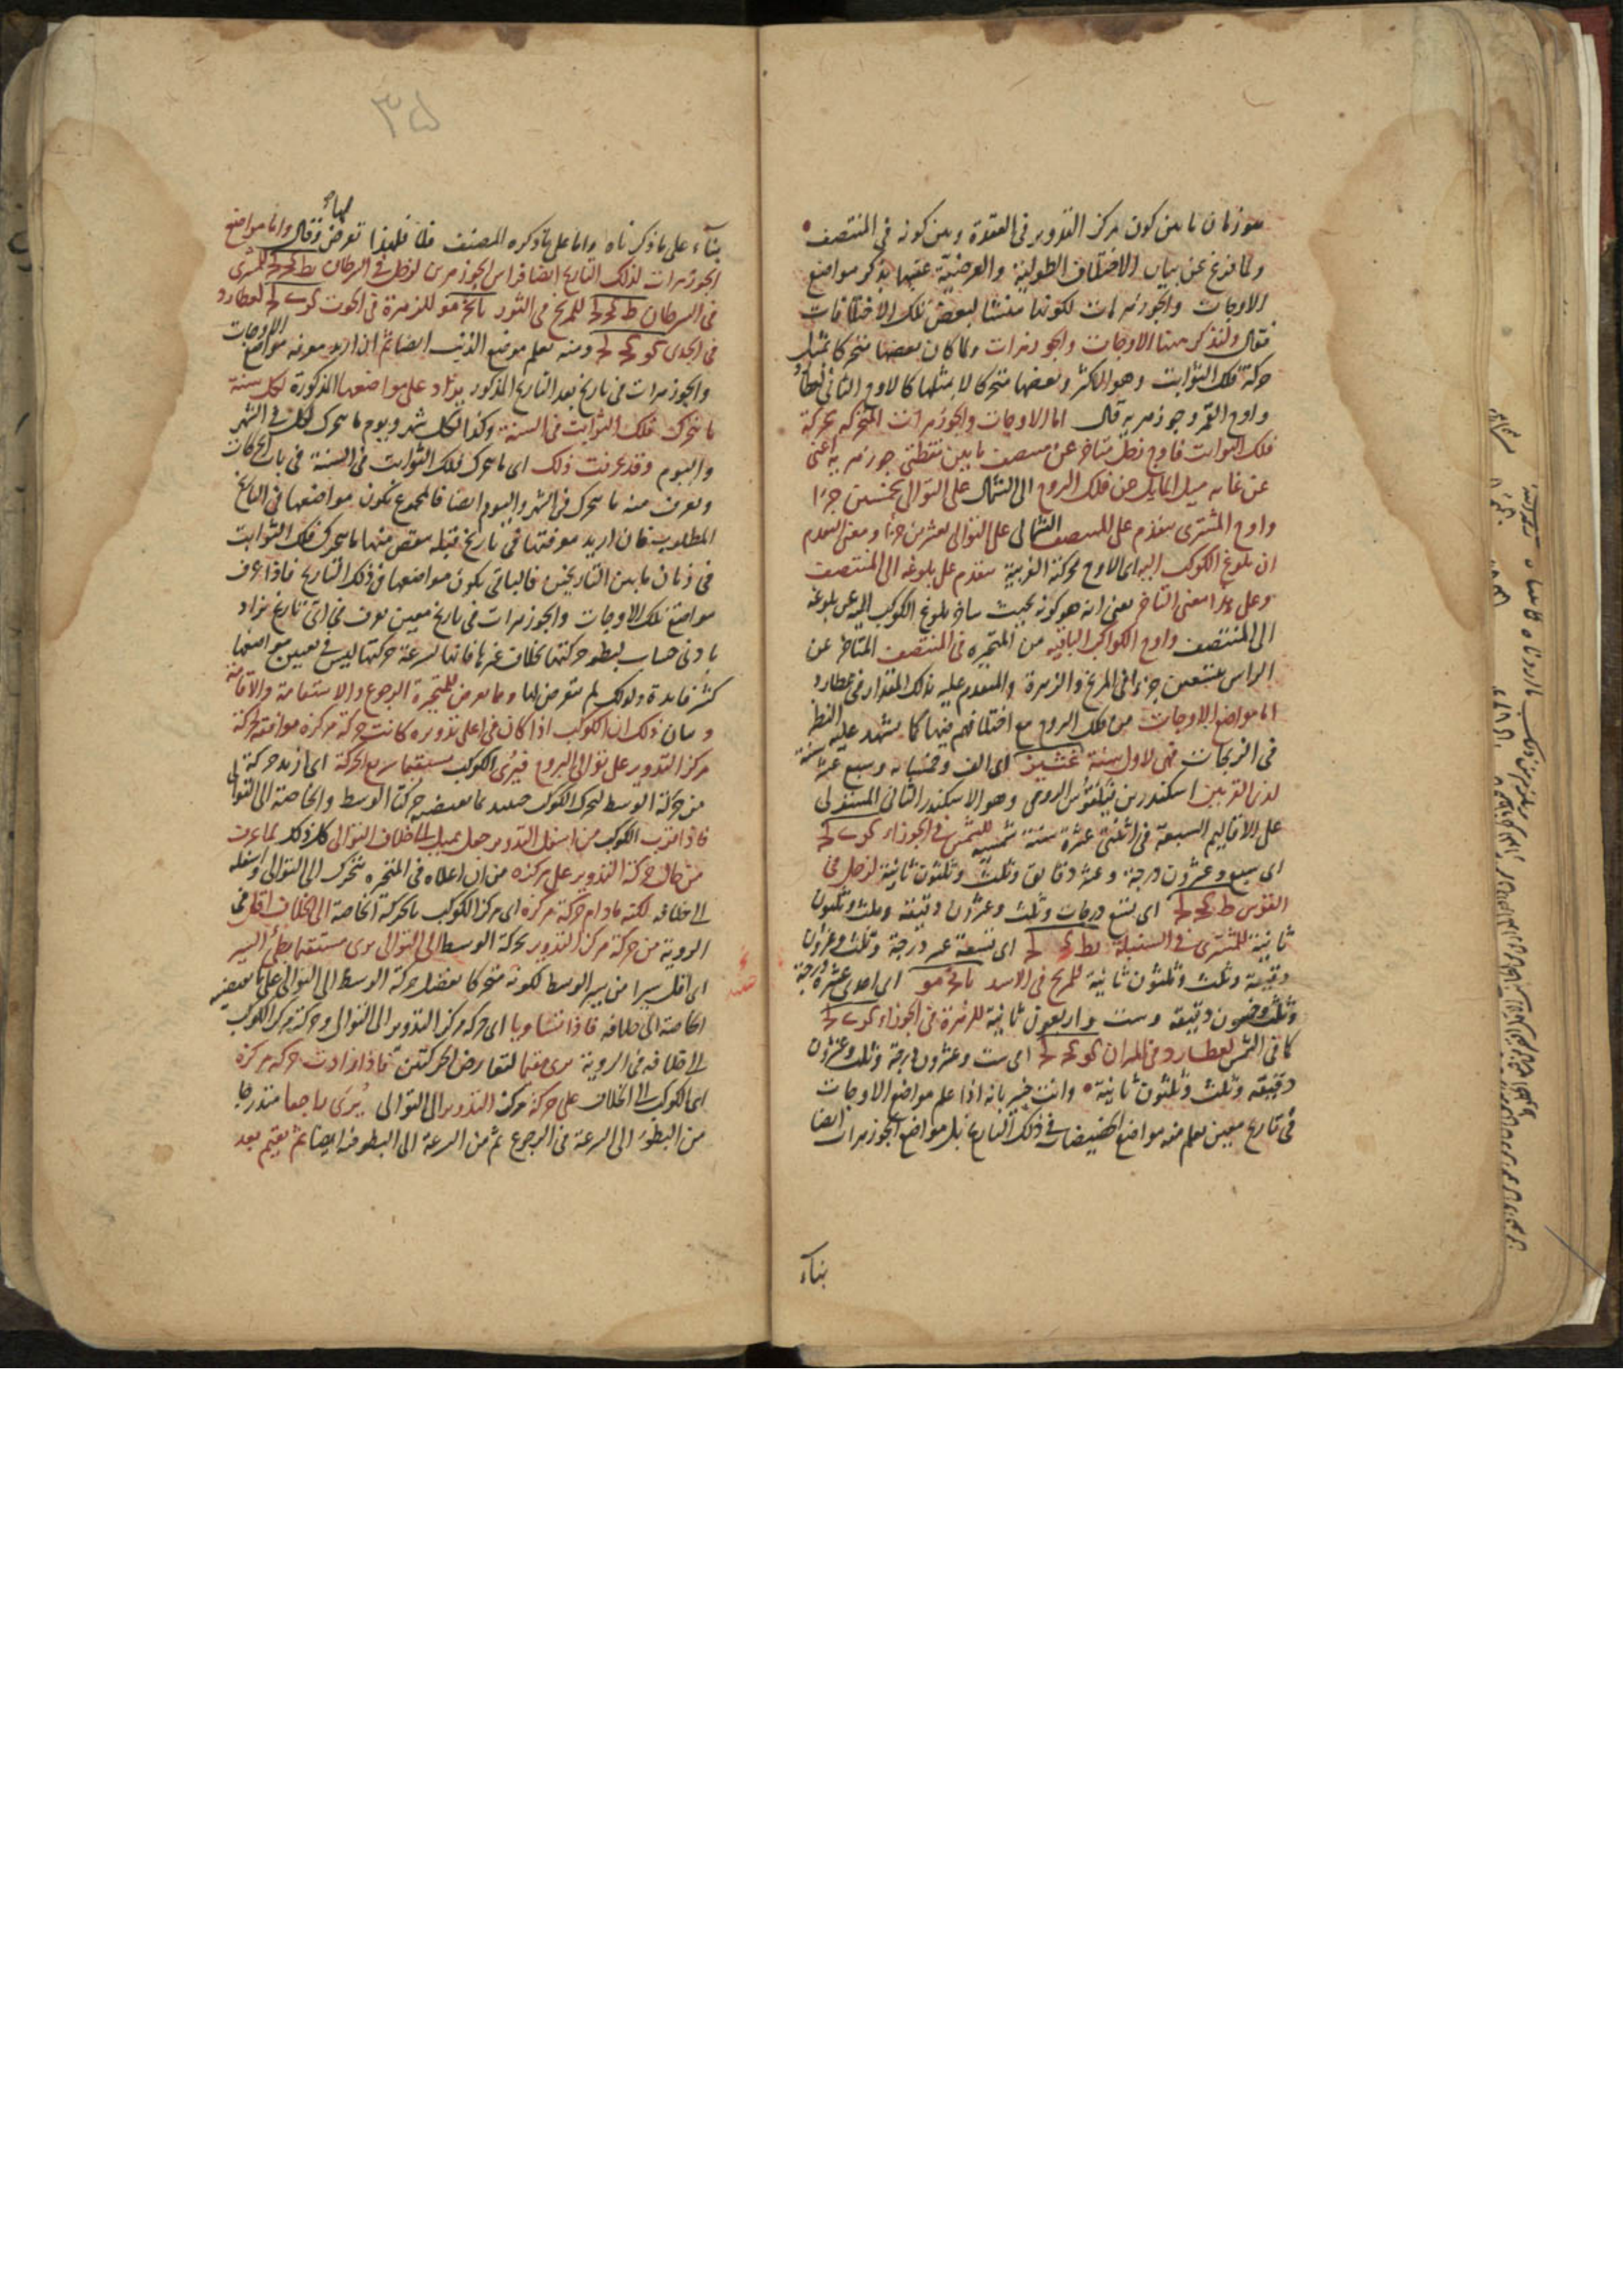 هو زمان ما بين كون مركز التدوير في العقدة وبين كونه في المنتصف
ولما فرغ عن بيان الاختلاف الطولية والعرضية عقبها بذكر مواضع
الاوجات والجوزهرات لكونها منشأ لبعض تلك الاختلافات
فقال ولنذكر هنا الاوجات والجوزهرات ولما كان بعضها متحركا بمثل
حركة فلك الثوابت وهو الاكثر وبعضها متحركا لا بمثلها كالاوج الثاني لعطارد
واوج القمر وجوزهريه قال اما الاوجات والجوزهرات المتحركه بحركة
فلك الثوابت فاوج زحل متاخر عن منتصف ما بين نقطتي جوزهريه اعني
عن غايه ميل المايل عن فلك البروج الى الشمال على التوالى بخمسين جزءا
واوج المشترى متقدم على المنتصف الشمالى على التوالى بعشرين جزءا ومعنى التقدم
ان بلوغ الكوكب اليه اى الاوج بحركته الغربية متقدم على بلوغه الى المنتصف
وعلى هذا معنى التاخر يعنى انه هو كونه بحيث يتاخر بلوغ الكوكب اليه عن بلوغه
الى المنتصف واوج الكواكب الباقيه من المتحيره فى المنتصف المتاخر عن
الراس بتسعين جزءا فى المريخ والزهرة والمتقدم عليه بذلك المقدار فى عطارد
اما مواضع الاوجات من فلك البروج مع اختلافهم فيها كما يشهد عليه النظر
فى الزيجات فهى لاول سنة غشيز اى الف وخمسمائه وسبع عشرة سنة
لذى القرنين اسكندر بن فيلقوس الرومى وهو الاسكندر الثانى المستولى
على الاقاليم السبعة فى اثنتى عشرة سنة شمسية للشمس فى الجوزاء كز ى لج
اى سبع وعشرون درجة وعشر دقايق وثلث وثلثون ثانية لزحل فى
القوس ط كج لج اى تسع درجات وثلث وعشرون دقيقة وثلث وثلثون
ثانية للمشترى فى السنبلة يط كج لج اى تسعة عشر درجة وثلث وعشرون
دقيقة وثلث وثلثون ثانية للمريخ فى الاسد يا نج مو اى احدى عشرة درجة
وثلث وخمسون دقيقة وست واربعون ثانية للزهرة فى الجوزاء كز ى لج
كما فى الشمس لعطارد فى الميزان كو كج لج اى ست وعشرون درجة وثلث وعشرون
دقيقه وثلث وثلثون ثانية وانت خبير بانه اذا علم مواضع الاوجات
فى تاريخ معين يعلم منه مواضع الحضيضات فى ذلك التاريخ بل مواضع الجوزهرات ايضا
بناء
٣٥
بناء على ما ذكرناه واما على ما ذكره المصنف فلا فلهذا تعرض لها وقال واما مواضع
الجوزهرات لذلك التاريخ ايضا فراس الجوزهرين لزحل فى السرطان يط كج لج للمشترى
فى السرطان ط كج لج للمريخ فى الثور يا نج مو للزهرة فى الحوت كز ى لج لعطارد
فى الجدى كو كج لج ومنه يعلم موضع الذنب ايضا ثم ان اريد معرفه مواضع الاوجات
والجوزهرات فى تاريخ بعد التاريخ المذكور يزاد على مواضعها المذكورة لكل سنة
ما يتحرك فلك الثوابت فى السنة وكذا لكل شهر ويوم ما يتحرك الفلك فى الشهر
واليوم وقد عرفت ذلك اى ما يتحرك فلك الثوابت فى السنة فى باب الحركات
ويعرف منه ما يتحرك فى الشهر واليوم ايضا فالمجموع يكون مواضعها فى التاريخ
المطلوب فان اريد معرفتها فى تاريخ قبله ينقص منها ما يتحرك فلك الثوابت
فى زمان ما بين التاريخين فالباقى يكون مواضعها فى ذلك التاريخ فاذا عرف
مواضع تلك الاوجات والجوزهرات فى تاريخ معين يعرف فى اى تاريخ يراد
بادنى حساب لبطو حركتها بخلاف غيرها فانها لسرعة حركتها ليس فى تعيين مواضعها
كثير فايدة ولذلك لم يتعرض لها ومما يعرض للمتحيرة الرجوع والاستقامة والاقامة
وبيان ذلك ان الكوكب اذا كان فى اعلى تدويره كانت حركة مركزه موافقة لحركة
مركز التدوير على توالى البروج فيرى الكوكب مستقيما سريع الحركة اى ازيد حركة
من حركة الوسط لتحرك الكوكب حينئذ بما تقتضيه حركتا الوسط والخاصة الى التوالى
فاذا قرب الكوكب من اسفل التدوير جعل يميل الى خلاف التوالى كل ذلك لما عرفت
من حال حركة التدوير على مركزه من ان اعلاه فى المتحيره يتحرك الى التوالى واسفله
الى خلافه لكنه ما دام حركة مركزه اى مركز الكوكب بالحركة الخاصة الى الخلاف اقل فى
الروية من حركة مركز التدوير بحركة الوسط الى التوالى يرى مستقيما بطئ السير
اى اقل سيرا من سير الوسط لكونه متحركا بفضل حركة الوسط الى التوالى على ما تقتضيه
الخاصة الى خلافه فاذا تساويا اى حركة مركز التدوير الى التوالى وحركة مركز الكوكب
الى خلافه فى الروية يرى مقيما لتعارض الحركتين فاذا زادت حركة مركزه
اى الكوكب الى الخلاف على حركة مركز التدوير الى التوالى يرى راجعا متدرجا
من البطؤ الى السرعة فى الرجوع ثم من السرعة الى البطو فيه ايضا ثم يقيم بعد